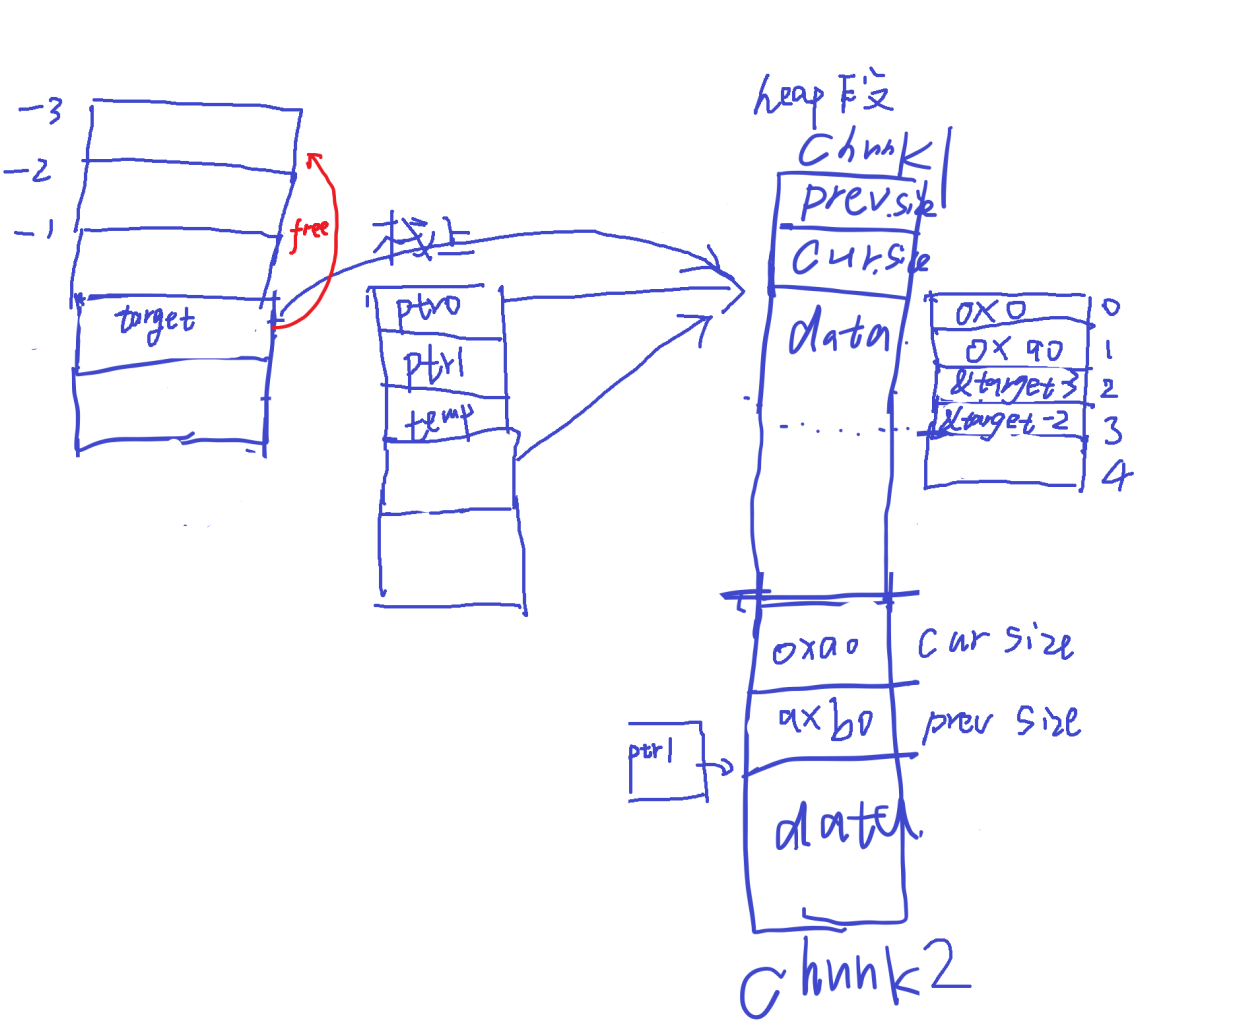 -3
-2
-1
free
target
栈上
ptr0
ptr1
temp
heap 片段
Chunk1
prev.size
cur.size
data
0x0 0
0x90 1
&target-3 2
&target-2 3
4
0xa0 cur size
0xb0 prev size
ptr1
data
Chunk2